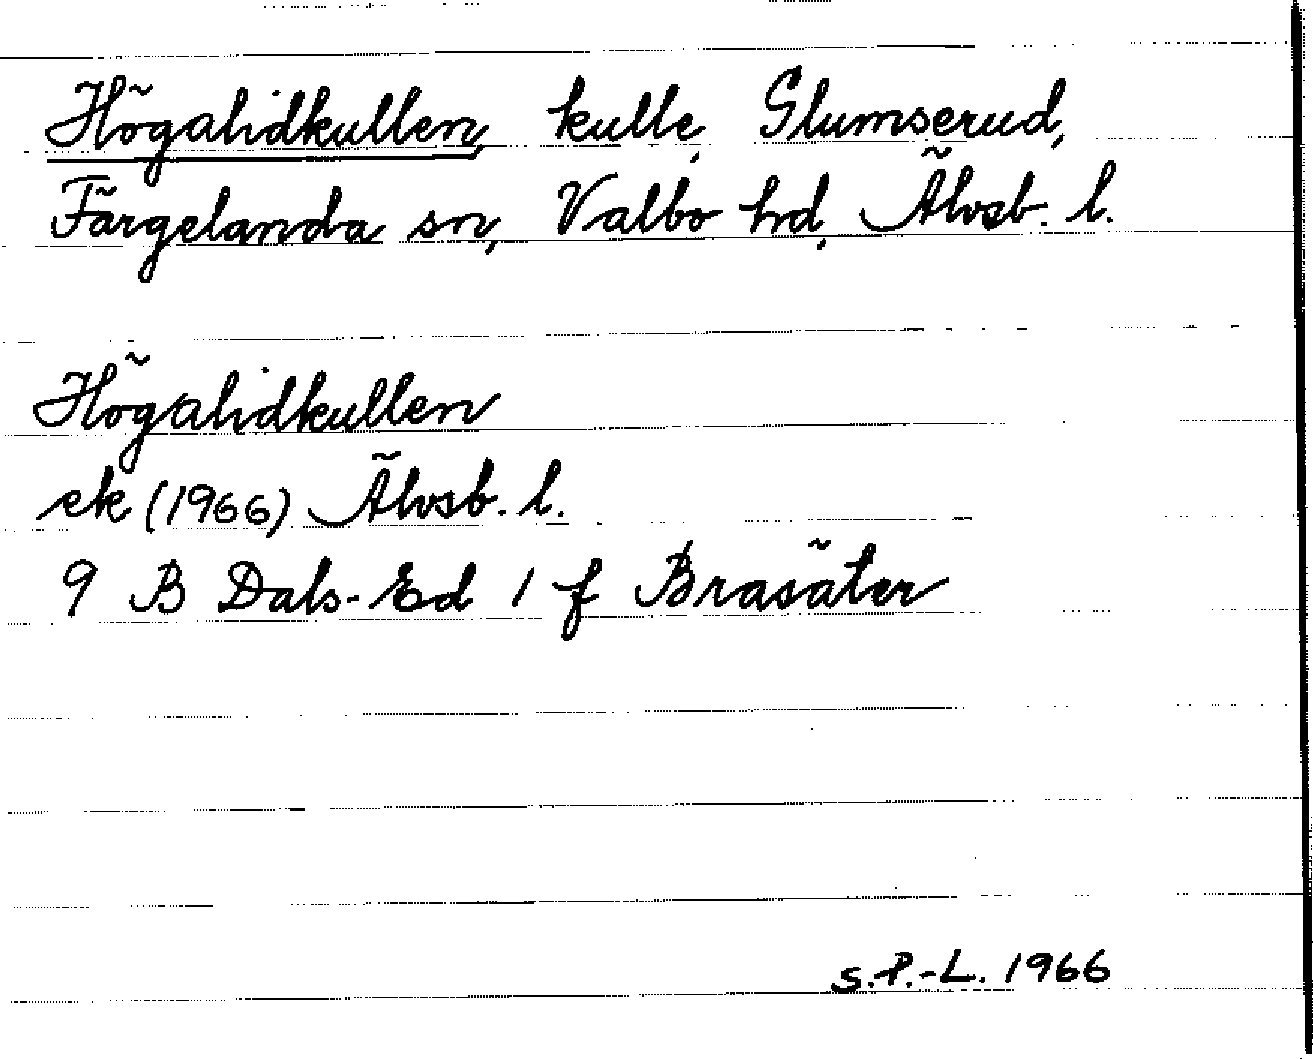 Högalidkullen, kulle, Slumserud,
Färgelanda sn, Valbo hd, Älvsb. l.
Högalidkullen
ek (1966) Älvsb. l.
9 B Dals-Ed 1 f Brasäter
S.P.-L. 1966